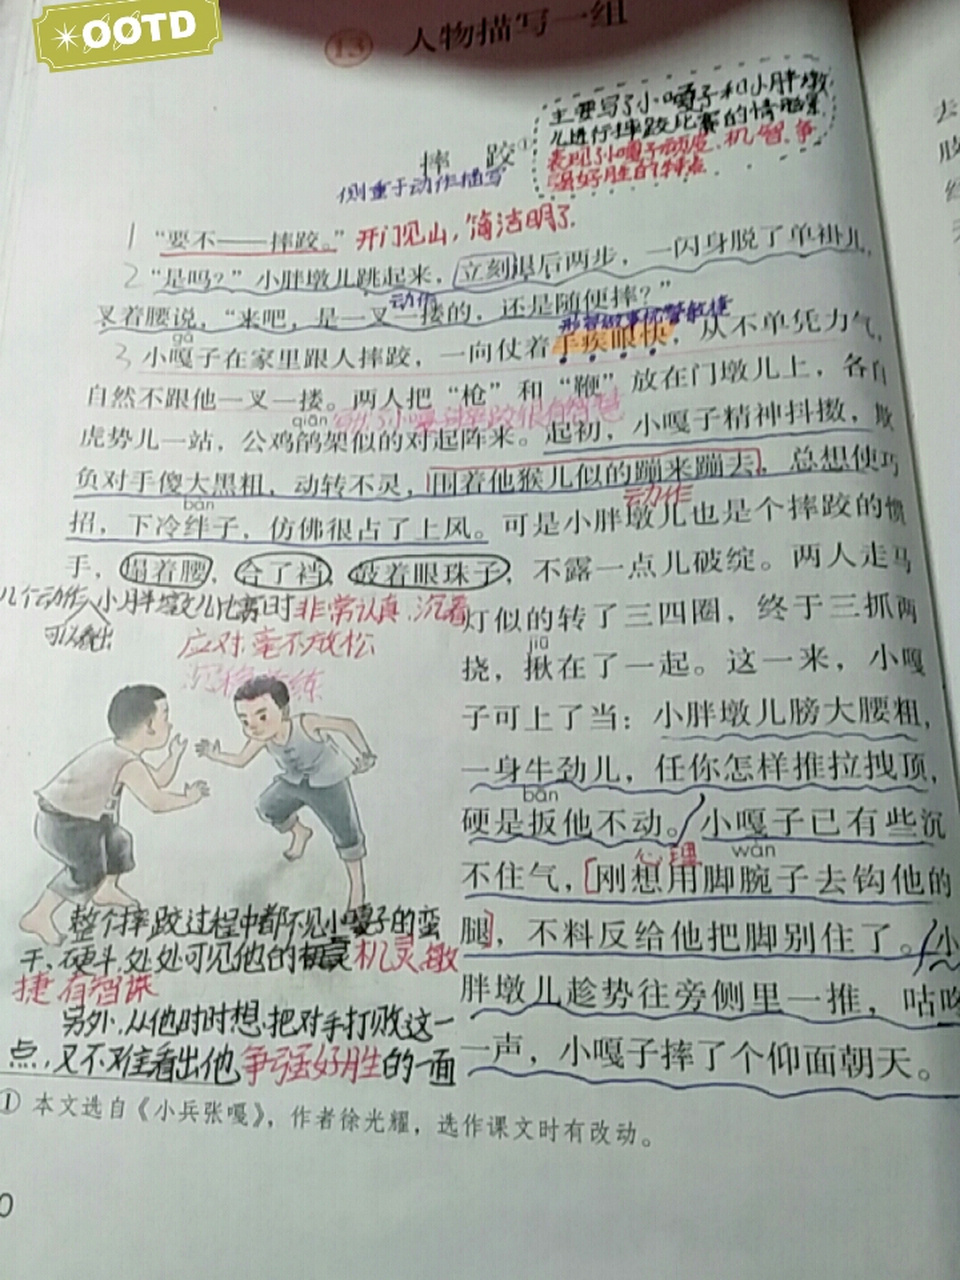 OOTD
13 人物描写一组
主要写了小嘎子和小胖墩
儿进行摔跤比赛的情景
表现了小嘎子 机智、争
强好胜的特点
摔 跤①
侧重于动作描写
1 “要不——摔跤。” 开门见山，简洁明了.
2 “是吗？”小胖墩儿跳起来，立刻退后两步，一闪身脱了单褂儿，
动作
叉着腰说，“来吧，是一叉一搂的，还是随便摔？”
形容做事机警敏捷
gā
3 小嘎子在家里跟人摔跤，一向仗着手疾眼快，从不单凭力气，
自然不跟他一叉一搂。两人把“枪”和“鞭”放在门墩儿上，各自
qiān
虎势儿一站，公鸡鹐架似的对起阵来。起初，小嘎子精神抖擞，欺
负对手傻大黑粗，动转不灵，围着他猴儿似的蹦来蹦去，总想使巧
bàn 动作
招，下冷绊子，仿佛很占了上风。可是小胖墩儿也是个摔跤的惯
手，塌着腰，合了裆，鼓着眼珠子，不露一点儿破绽。两人走马
几个动作 小胖墩儿比赛时非常认真、沉着
可以看出
应对,毫不放松
灯似的转了三四圈，终于三抓两
jiū
挠，揪在了一起。这一来，小嘎
子可上了当：小胖墩儿膀大腰粗，
一身牛劲儿，任你怎样推拉拽顶，
bān
硬是扳他不动。小嘎子已有些沉
心理 wàn
不住气，[刚想用脚腕子去钩他的
腿]，不料反给他把脚别住了。小
胖墩儿趁势往旁侧里一推，咕咚
一声，小嘎子摔了个仰面朝天。
整个摔跤过程中都不见小嘎子的蛮
干、硬斗,处处可见他的机灵敏
捷 有智谋
另外,从他时时想把对手打败这一
点,又不难看出他争强好胜的一面
① 本文选自《小兵张嘎》，作者徐光耀，选作课文时有改动。
0